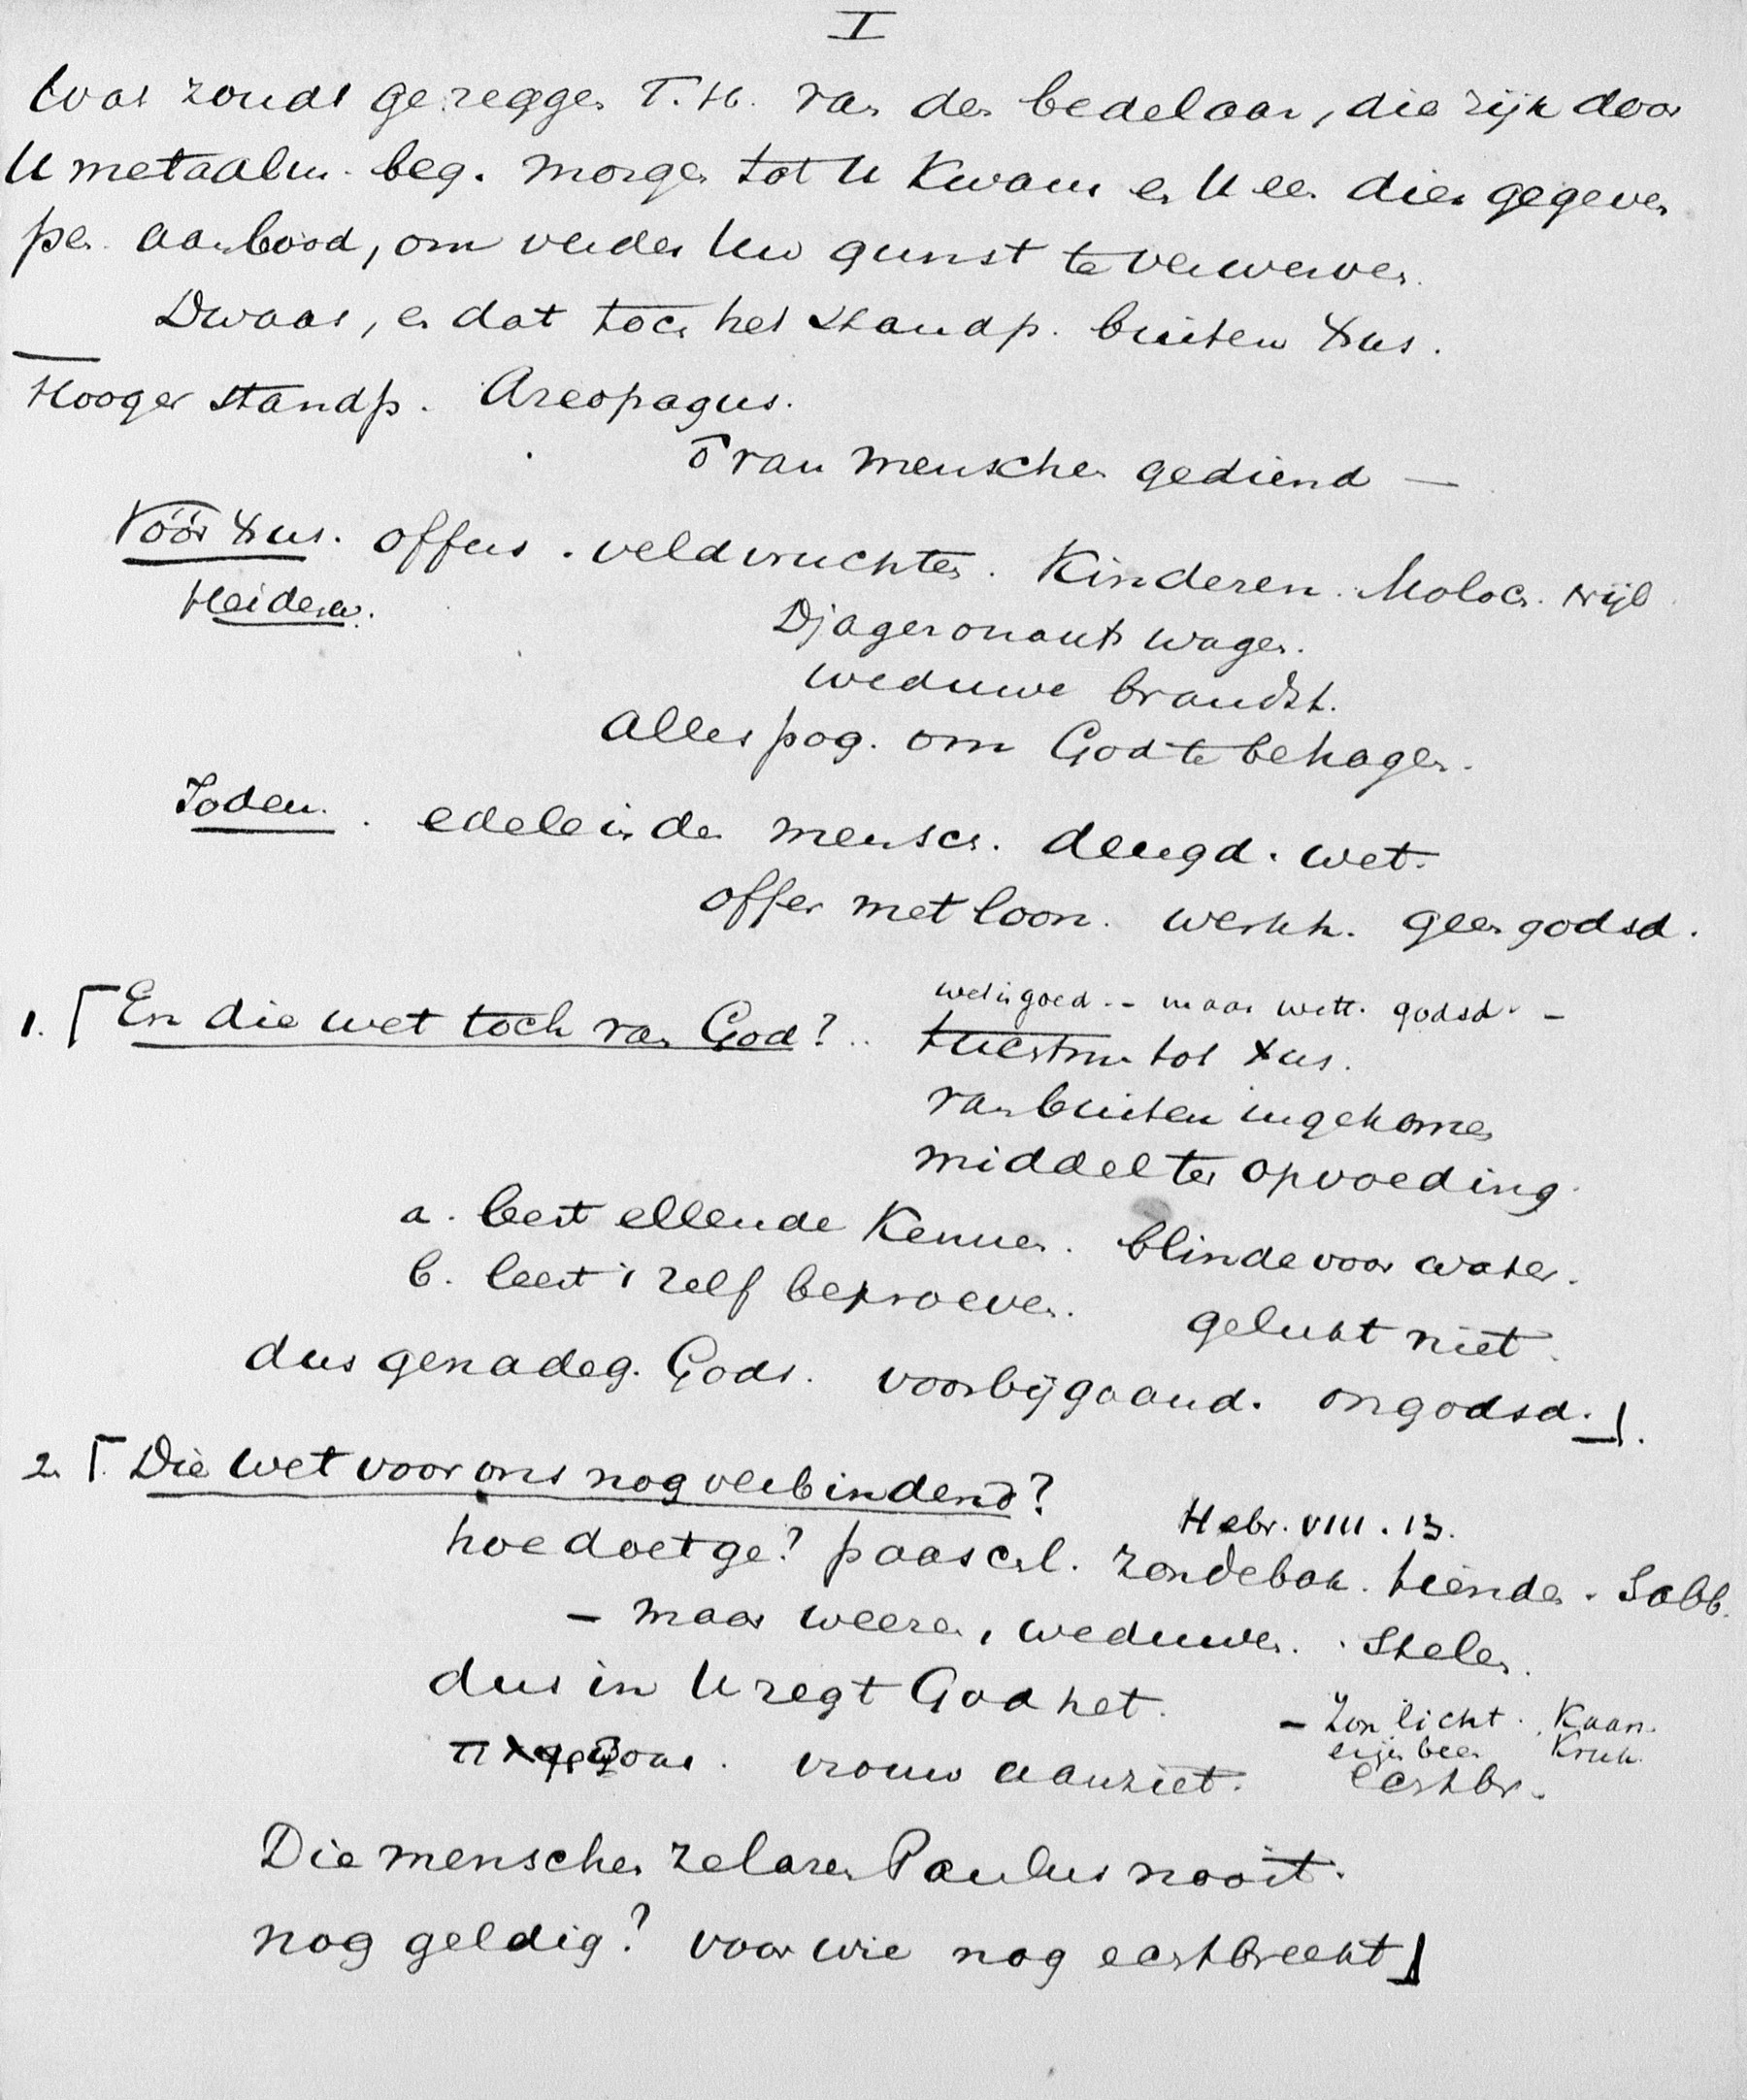 I
Wat zoudt ge zeggen T.H. van den bedelaar, die zijn door
U met aalm. beg. morgen tot U kwam en U een dier gegeven
pen. aanbood, om verder Uw gunst te verwerven.
Dwaas, en dat toch het standp. buiten Xus.
Hooger standp. Areopagus.
van menschen gediend —
Vóór Xus. offers. veldvruchten. Kinderen. Moloch. Nijl
Heidenen.
Djagernauts wagen.
weduwe brandst.
alles pog. om God te behagen.
Joden. edele in den mensch. deugd. wet.
offer met loon. werkh. geen godsd.
wet is goed -- maar wett. godsd. -
1. [ En die wet toch van God? .. tuchtm. tot Xus.
van buiten ingekomen
middel ter opvoeding.
a. leert ellende kennen. blinde voor water.
b. leert 't zelf beproeven. gelukt niet.
dus genadeg. Gods. voorbijgaand. ongodsd. ].
2. [. Die wet voor ons nog verbindend?
Hebr. VIII. 13.
hoe doet ge? paaschl. zondebok. tienden. Sabb.
- maar weezen, weduwen. stelen.
dus in U zegt God het.
- Zon licht. Kaars.
vrouw aanziet. echtbr.
Die menschen zelven Paulus nooit.
nog geldig? voor wie nog echtbreekt ]